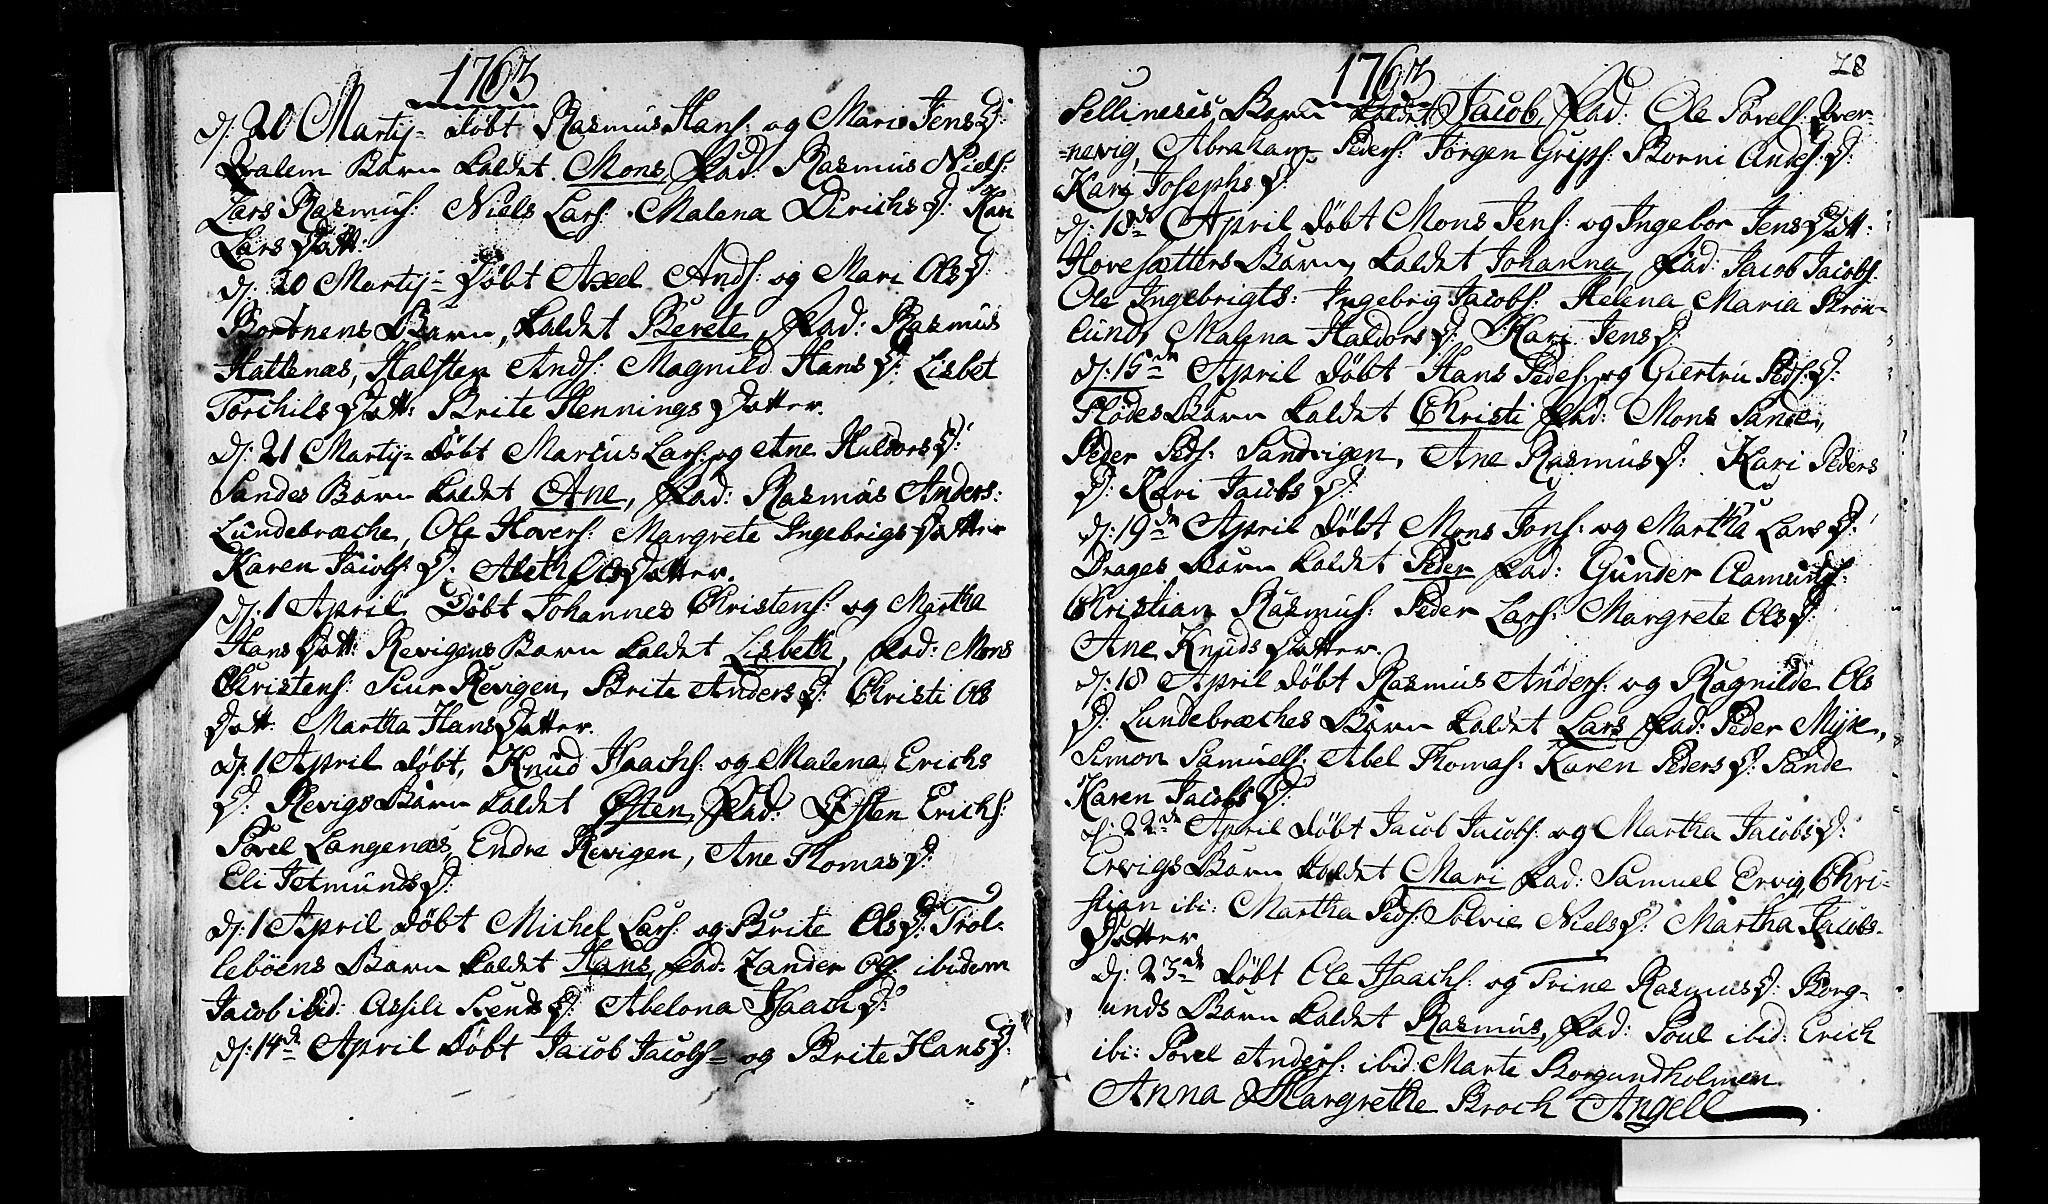 1763
d: 20 Martij döbt Rasmus Hans: og Mari Jens D:
Qvalem Barn kaldet Mons, Fad: Rasmus Niels:
Lars Rasmus: Niels Lars: Malena Dirichs D: Kari
Lars Datt:
d: 20 Martij döbt Axel Ands: og Mari Ols D:
Barn, kaldet Berete, Fad: Rasmus
Hattenæs, Halsten Ands: Magnild Hans D: Lisbet
Torchils Datt: Brite Hennings Datter.
d: 21 Martij döbt Marcus Lars: og Ane Haldors D:
Sandes Barn kaldet Ane, Fad: Rasmus Anders:
Lundebræche, Ole Hovers: Margrete Ingebrigs Datter
Karen Jacobs: D: Aleth Ols Datter.
d: 1 April Döbt Johannes Christens: og Martha
Hans Datt: Revigens Barn kaldet Lisbeth, Fad: Mons
Christens: Siur Revigen, Brite Anders D: Christi Ols
Datt. Martha Hans Datter.
d: 1 April döbt, Knud Isaachs: og Malena Erichs
D: Revigs Barn kaldet Østen, Fad: Østen Erichs:
Povel Langenæs, Endre Revigen, Ane Thomas D:
Eli Jetmunds D:
d: 1 April döbt Michel Lars: og Brite Ols D: Trol-
leböens Barn kaldet Hans, Fad: Zander Ols: ibidem
Jacob ibid: Assili Svends D: Abelona Isaach D:
d: 14de April döbt Jacob Jacobs= og Brite Hans D:
1763
28
Sellineses Barn kaldet Jacob, Fad: Ole Povels: Qver-
=nevig, Abraham Peders: Jørgen Grips: Borni Andes: D:
Kari Josephs D:
d: 18de April döbt Mons Jens: og Ingebor Jens Datt:
Hovesætters Barn, kaldet Johanna, Fad: Jacob Jacobs:
Ole Ingebrigts: Ingebrig Jacobs: Helena Maria Brön-
lund, Malena Haldors D: Kari Jens D:
d: 15de April döbt Hans Peders: og Giertru Peds: D:
Flödes Barn kaldet Christi Fad: Mons Sande,
Peder Peds: Sandvigen, Ane Rasmus D: Kari Peders
D: Kari Jacobs D:
d: 19de April döbt Mons Jons: og Martha Lars D:
Drages Barn kaldet Peder Fad: Gunder Aamunds:
Christian Rasmus: Peder Lars: Margrete Ols D:
Ane Knuds Datter.
d: 18 April döbt Rasmus Anders: og Ragnilde Ols
D: Lundebræches Barn kaldet Lars Fad: Peder Myre,
Simon Samuels: Abel Thomas: Karen Peders D: Sande
Karen Jacobs D:
d: 22de April döbt Jacob Jacobs: og Martha Jacobs D:
Ervigs Barn kaldet Mari Fad: Samuel Ervig, Chri-
stian ibi: Martha Peds: Solvie Niels D: Martha Jacobs-
Datter
d: 23de döbt Ole Isaachs: og Trine Rasmus D: Borg-
unds Barn kaldet Rasmus, Fad: Poul ibid: Erich
ibi: Povel Anders: ibid: Marte Borgundholmen
Anna Margrethe Broch Angell